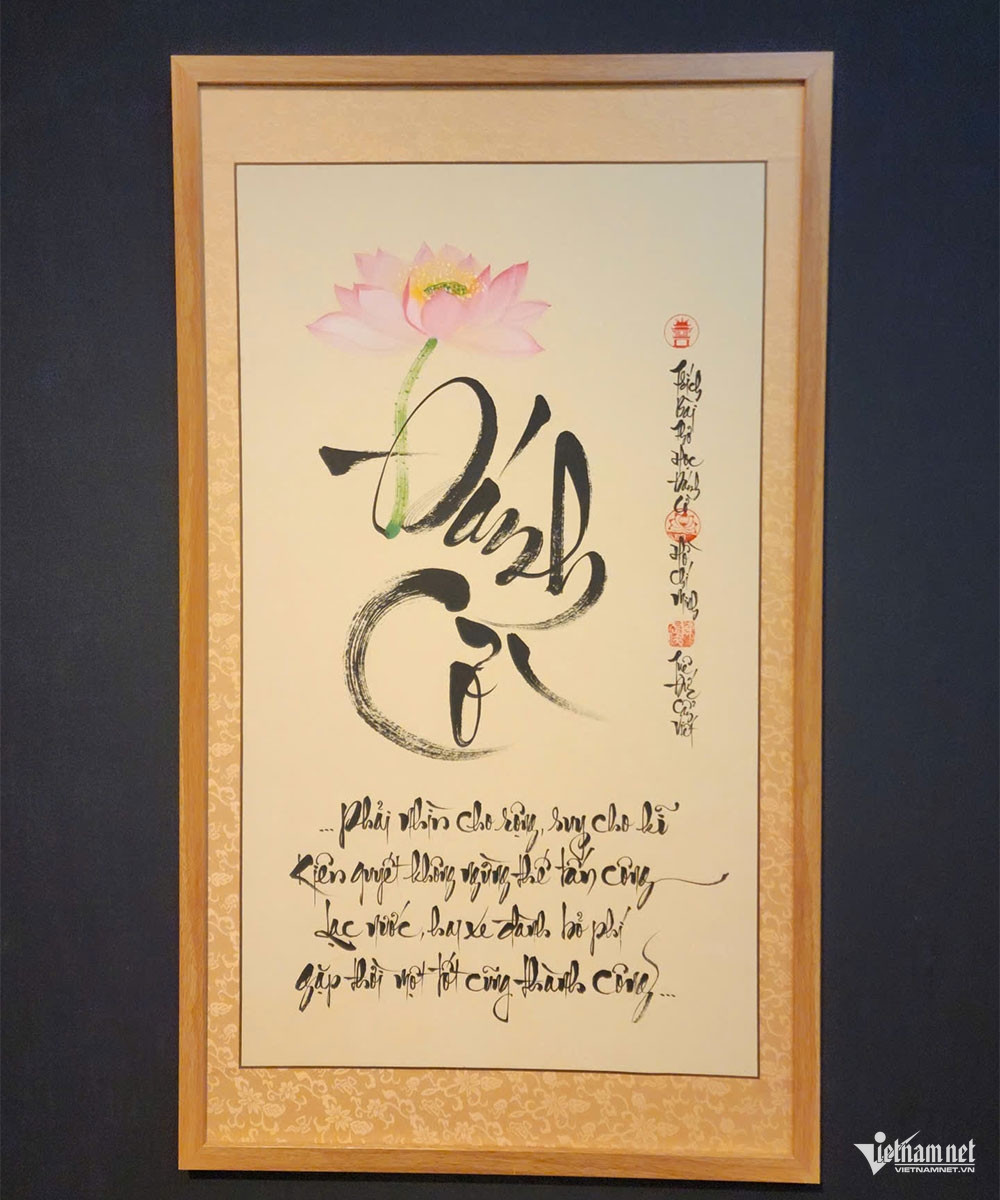 Đánh
Cờ
...Phải nhìn cho rộng, suy cho kĩ
Kiên quyết không ngừng thế tấn công
Lạc nước, hai xe đành bỏ phí
Gặp thời một tốt cũng thành công...
Trích
Bài
Thơ
Học
Đánh
Cờ
Hồ
Chí
Minh
Tuệ
Cẩn
Viết
Vietnamnet
VIETNAMNET.VN